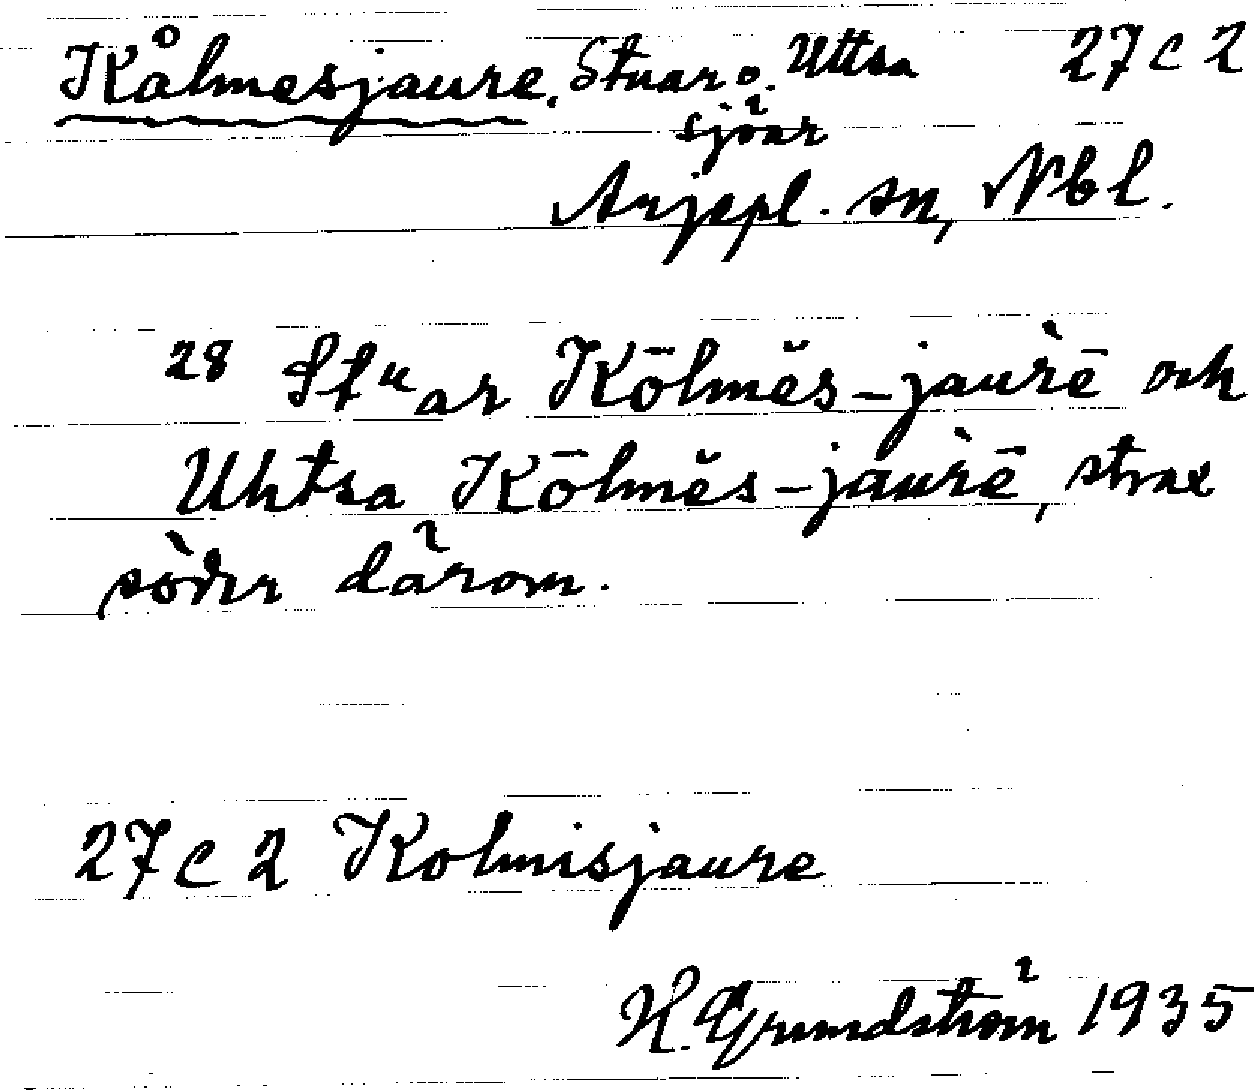 Kålmesjaure, Stuar o. Uttsa 27 C 2
sjöar
Arjepl. sn, Nbl.
28 Stᵘar Kō̄lmĕs-jaùrē och
Uhtsa Kō̄lmĕs-jaùrē, strax
söder därom.
27 C 2 Kolmisjaure
H. Grundström 1935